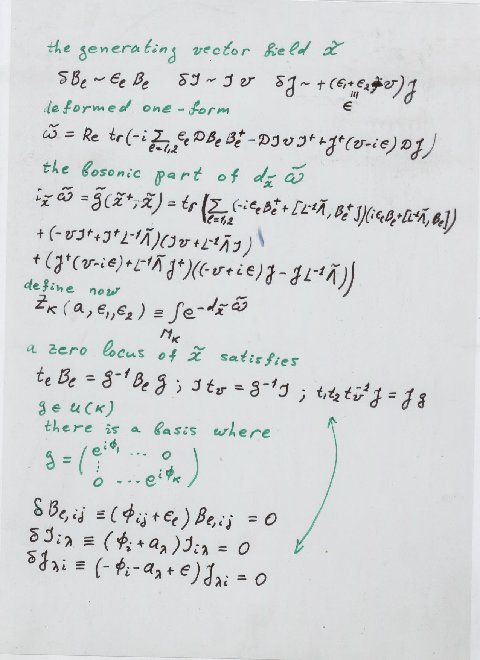 the generating vector field x̃
δBₑ ~ ϵₑ Bₑ   δI ~ I v   δJ ~ +(ϵ₁+ϵ₂ v) J
≡
ϵ
deformed one-form
ω̃ = Re tr(-i ∑ₑ₌₁,₂ ϵₑ DBₑ Bₑ⁺ - DI v I⁺ + J⁺(v-iϵ) DJ)
the bosonic part of dₓ̃ ω̃
iₓ̃ ω̃ = g̃(x̃⁺, x̃) = tr(∑ₑ₌₁,₂ (-iϵₑBₑ⁺ + [L⁻¹Λ̃, Bₑ⁺])(iϵₑBₑ + [L⁻¹Λ̃, Bₑ])
+ (-vI⁺ + I⁺L⁻¹Λ̃)(Iv + L⁻¹Λ̃ I)
+ (J⁺(v-iϵ) + L⁻¹Λ̃ J⁺)((-v+iϵ) J - J L⁻¹Λ̃))
define now
Zκ(a, ϵ₁, ϵ₂) ≡ ∫ e^{-dₓ̃ ω̃}
Mκ
a zero locus of x̃ satisfies
tₑ Bₑ = g⁻¹ Bₑ g ; I tᵥ = g⁻¹ I ; t₁t₂ tᵥ⁻¹ J = J g
g ∈ U(K)
there is a basis where
g = ( e^{iϕ₁} ... 0
⋮
0 ... e^{iϕκ} )
δBₑ,ᵢⱼ ≡ (ϕᵢⱼ + ϵₑ) Bₑ,ᵢⱼ = 0
δI_{iλ} ≡ (ϕᵢ + a_λ) I_{iλ} = 0
δJ_{λi} ≡ (-ϕᵢ - a_λ + ϵ) J_{λi} = 0